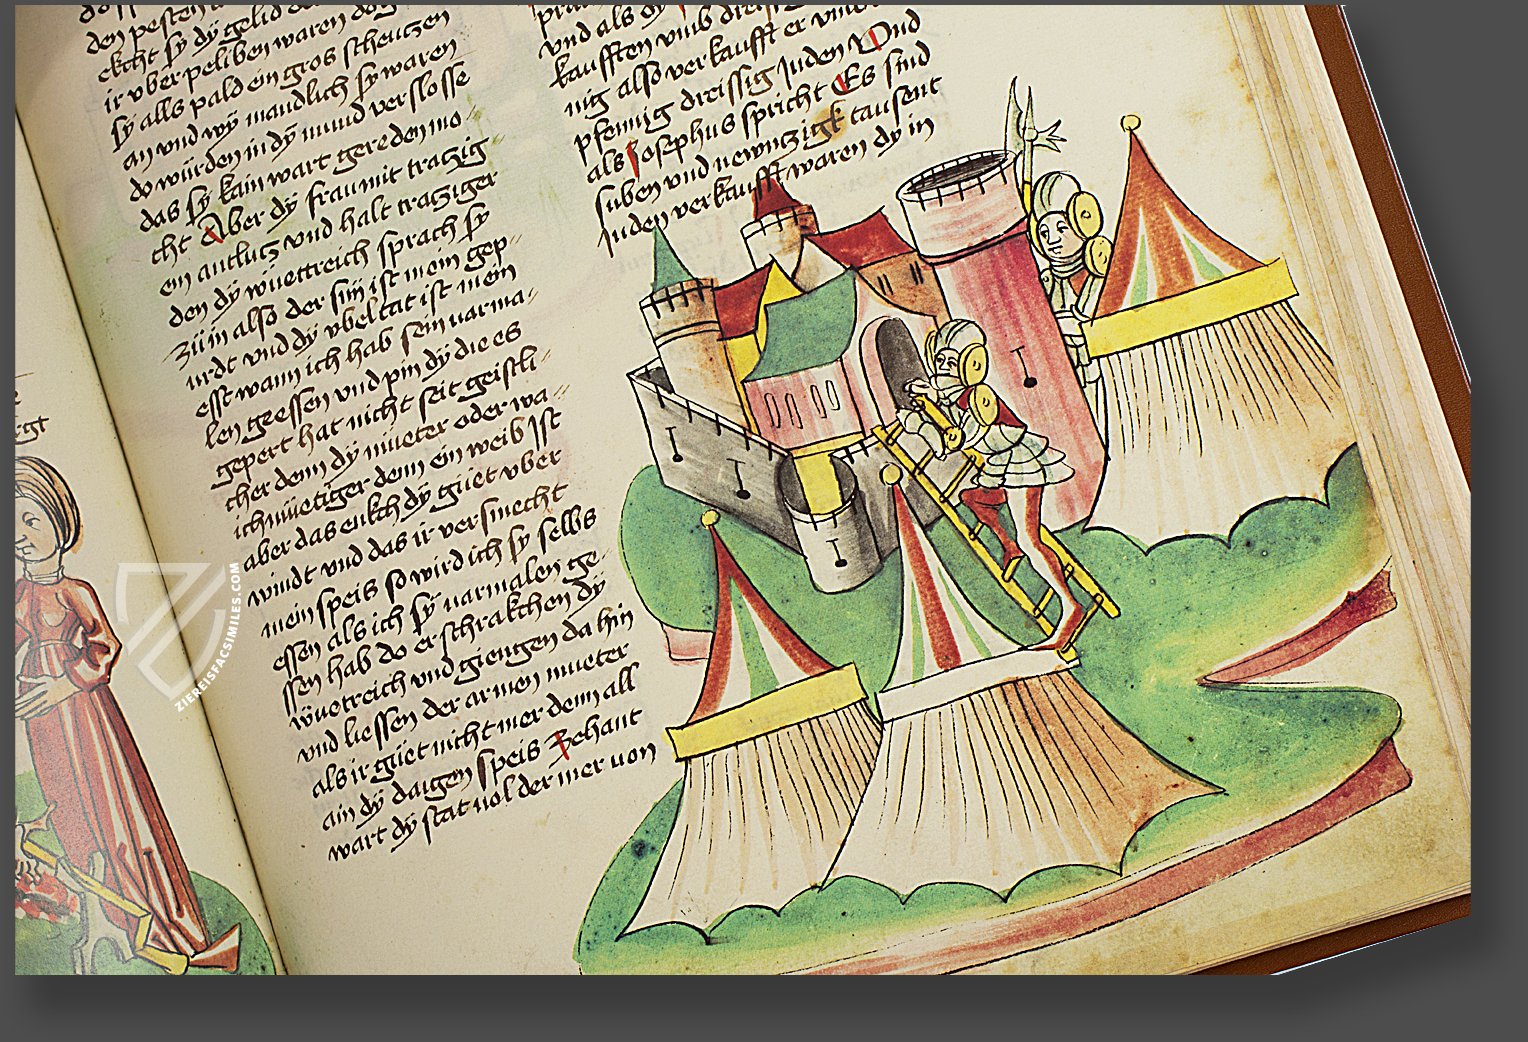 den pesten
ekcht sy dy gelid
ir vber peliben waren
sy alls pald ein gros scheutzen
an vnd wy mandlich sy waren
do würden in dy mund verslosse
das sy kain wart gereden mo
cht Aber dy frau mit tratzig
en antlutz vnd halt tratziger
den dy wüettreich sprach sy
zü in also der sün ist mein gep
urdt vnd dy vbeltat ist mein
esst wann ich hab sein varma
len geessen vnd pin dy die es
gepert hat nicht seit geistli
cher denn dy mueter oder wa
ichmüetiger denn ein weib Ist
aber das eukch dy güet vber
windt vnd das ir versmecht
mein speis so wird ich sy selbs
essen als ich sy varmalen ge
ssen hab do erschrakchen dy
wüetreich vnd giengen da hin
vnd liessen der armen mueter
als ir güet nicht mer denn all
ain dy daigen speis Zehant
wart dy stat vol der mer von
vnd als
kaufften vmb
nig also verkaufft er
pfennig dreissig Juden Vnd
als Josephus spricht Es sind
siben vnd newntzigk tausent
Juden verkaufft waren dy in
rgt
ZIEREISFACSIMILES.COM